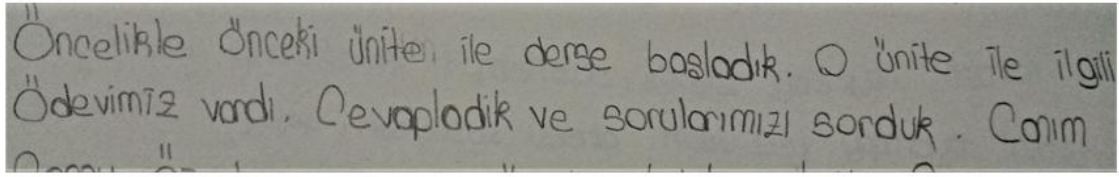 Öncelikle önceki ünite ile derse başladık. O ünite ile ilgili
Ödevimiz vardı. Cevapladik ve sorularımızı sorduk. Canım